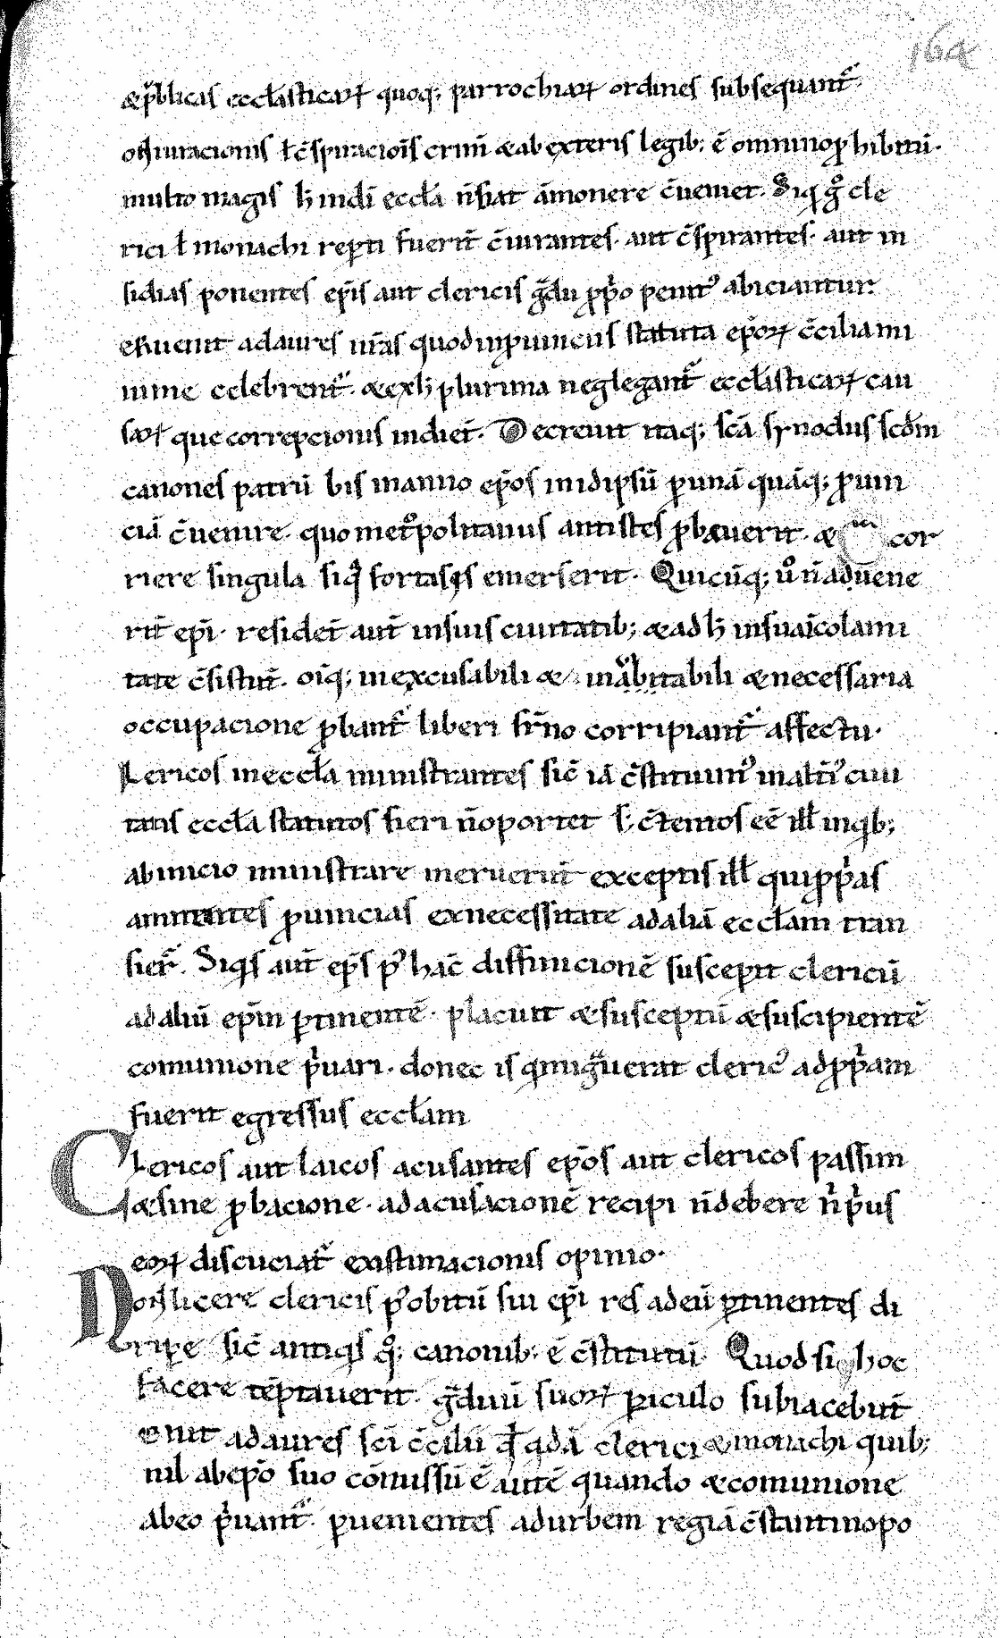 164
&p̄blicas eccl̄asticaꝝ quoq; parrochiaꝝ ordines subsequant᷑.
oniuracionis ł c̄spiracioīs crim̄ & ab exteris legib; ē omnino ꝓhibitū·
multo magis ħ in dī eccl̄a n̄ fiat āmonere c̄uenit. Siq̇ gͦ cle
rici ł monachi reꝑti fuerīt c̄iurantes· aut c̄spirantes· aut in
sidias ponentes ep̄is aut clericis gͣdu ꝓpͥo penitꝰ abiciantur.
eruenit ad aures nr̄as quod in ꝓuinciis statuta ep̄oꝝ c̄cilia mi
nime celebrent᷑. & ex ħ plurima neglegant᷑ eccl̄asticaꝝ cau
saꝝ que correpcionis indiēt. Decreuit itaq; sc̄a synodus scd̄m
canones patrū bis in anno ep̄os in idipsū ꝑ unā quāq; ꝓuin
ciā c̄uenire. quo metͦpolitanus antistes ꝓbauerit. & cor
riere singula siqͣ fortassis emerserit. Quicūq; uͦ n̄ aduene
rīt ep̄i. resident aut̄ in suis ciuitatib; & ad ħ in sua īcolami
tate c̄sistūt. oīq; inexcusabili & inͣbitabili & necessaria
occupacione ꝓbant᷑ liberi fr̄no corripiant᷑ affectu.
Lericos in eccl̄a ministrantes sic̄ iā c̄stituimꝰ in alt̄iꝰ ciui
tatis eccl̄a statutos fieri n̄ oportet s; c̄tentos eē ill̄ in qͥb;
ab inicio ministrare meruerūt exceptis ill̄ qui ꝓpͥas
amittentes ꝓuincias ex necessitate ad aliā eccl̄am tran
sier̄. Siqͥs aut̄ ep̄s pꝰ hāc diffinicionē susceꝑit clericū
ad aliū ep̄m ꝑtinentē. placuit & susceptū & suscipientē
comunione pͥuari. donec is qͥ migͣuerat clericꝰ ad ꝓpͥam
fuerit egressus eccl̄am
Clericos aut laicos acusantes ep̄os aut clericos passim
& sine ꝓbacione. ad acusacionē recipi n̄ debere n̄ pͥus
eoꝝ discuciat᷑ existimacionis opinio.
Non licere clericis pꝰ obitū sui ep̄i res ad eū ꝑtinentes di
riꝑe sic̄ antiqͥs qͦq; canonib; ē c̄stitutū. Quod si hoc
facere tēptauerit. gͣduū suoꝝ ꝑiculo subiacebūt
enit ad aures sc̄i c̄cilii qͩ qͥdā clerici & monachi quib;
nil ab ep̄o suo cōmissū ē autē quando & comunione
ab eo pͥuant᷑. ꝑuenientes ad urbem regiā c̄stantinopo